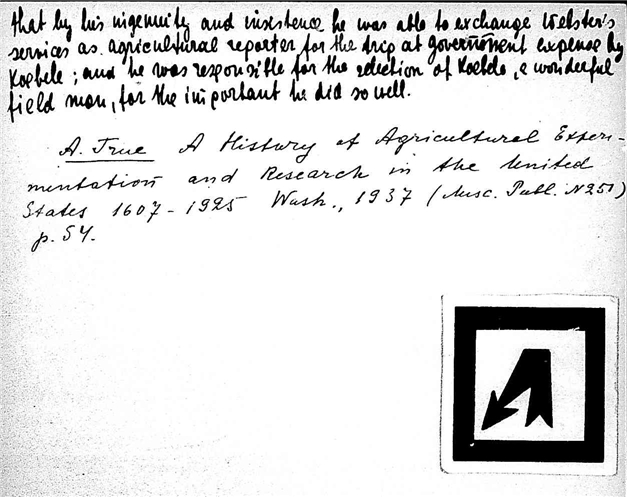 that by his nigenuity and insistence he was able to exchange Webster's
services as agricultural reporter for the trip at government expense by
Koebele; and he was responsible for the selection of Koebele, a wonderful
field man, for the important he did so well.
A. True A History of Agricultural Experi-
mentation and Research in the United
States 1607-1925 Wash., 1937 (Misc. Publ. N 251)
p. 54.